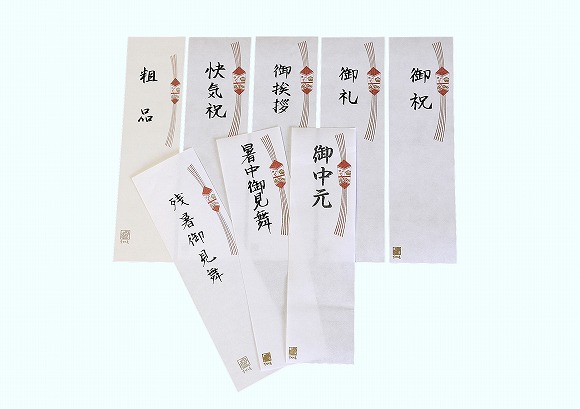 御祝
御礼
御挨拶
快気祝
粗品
御中元
暑中御見舞
残暑御見舞